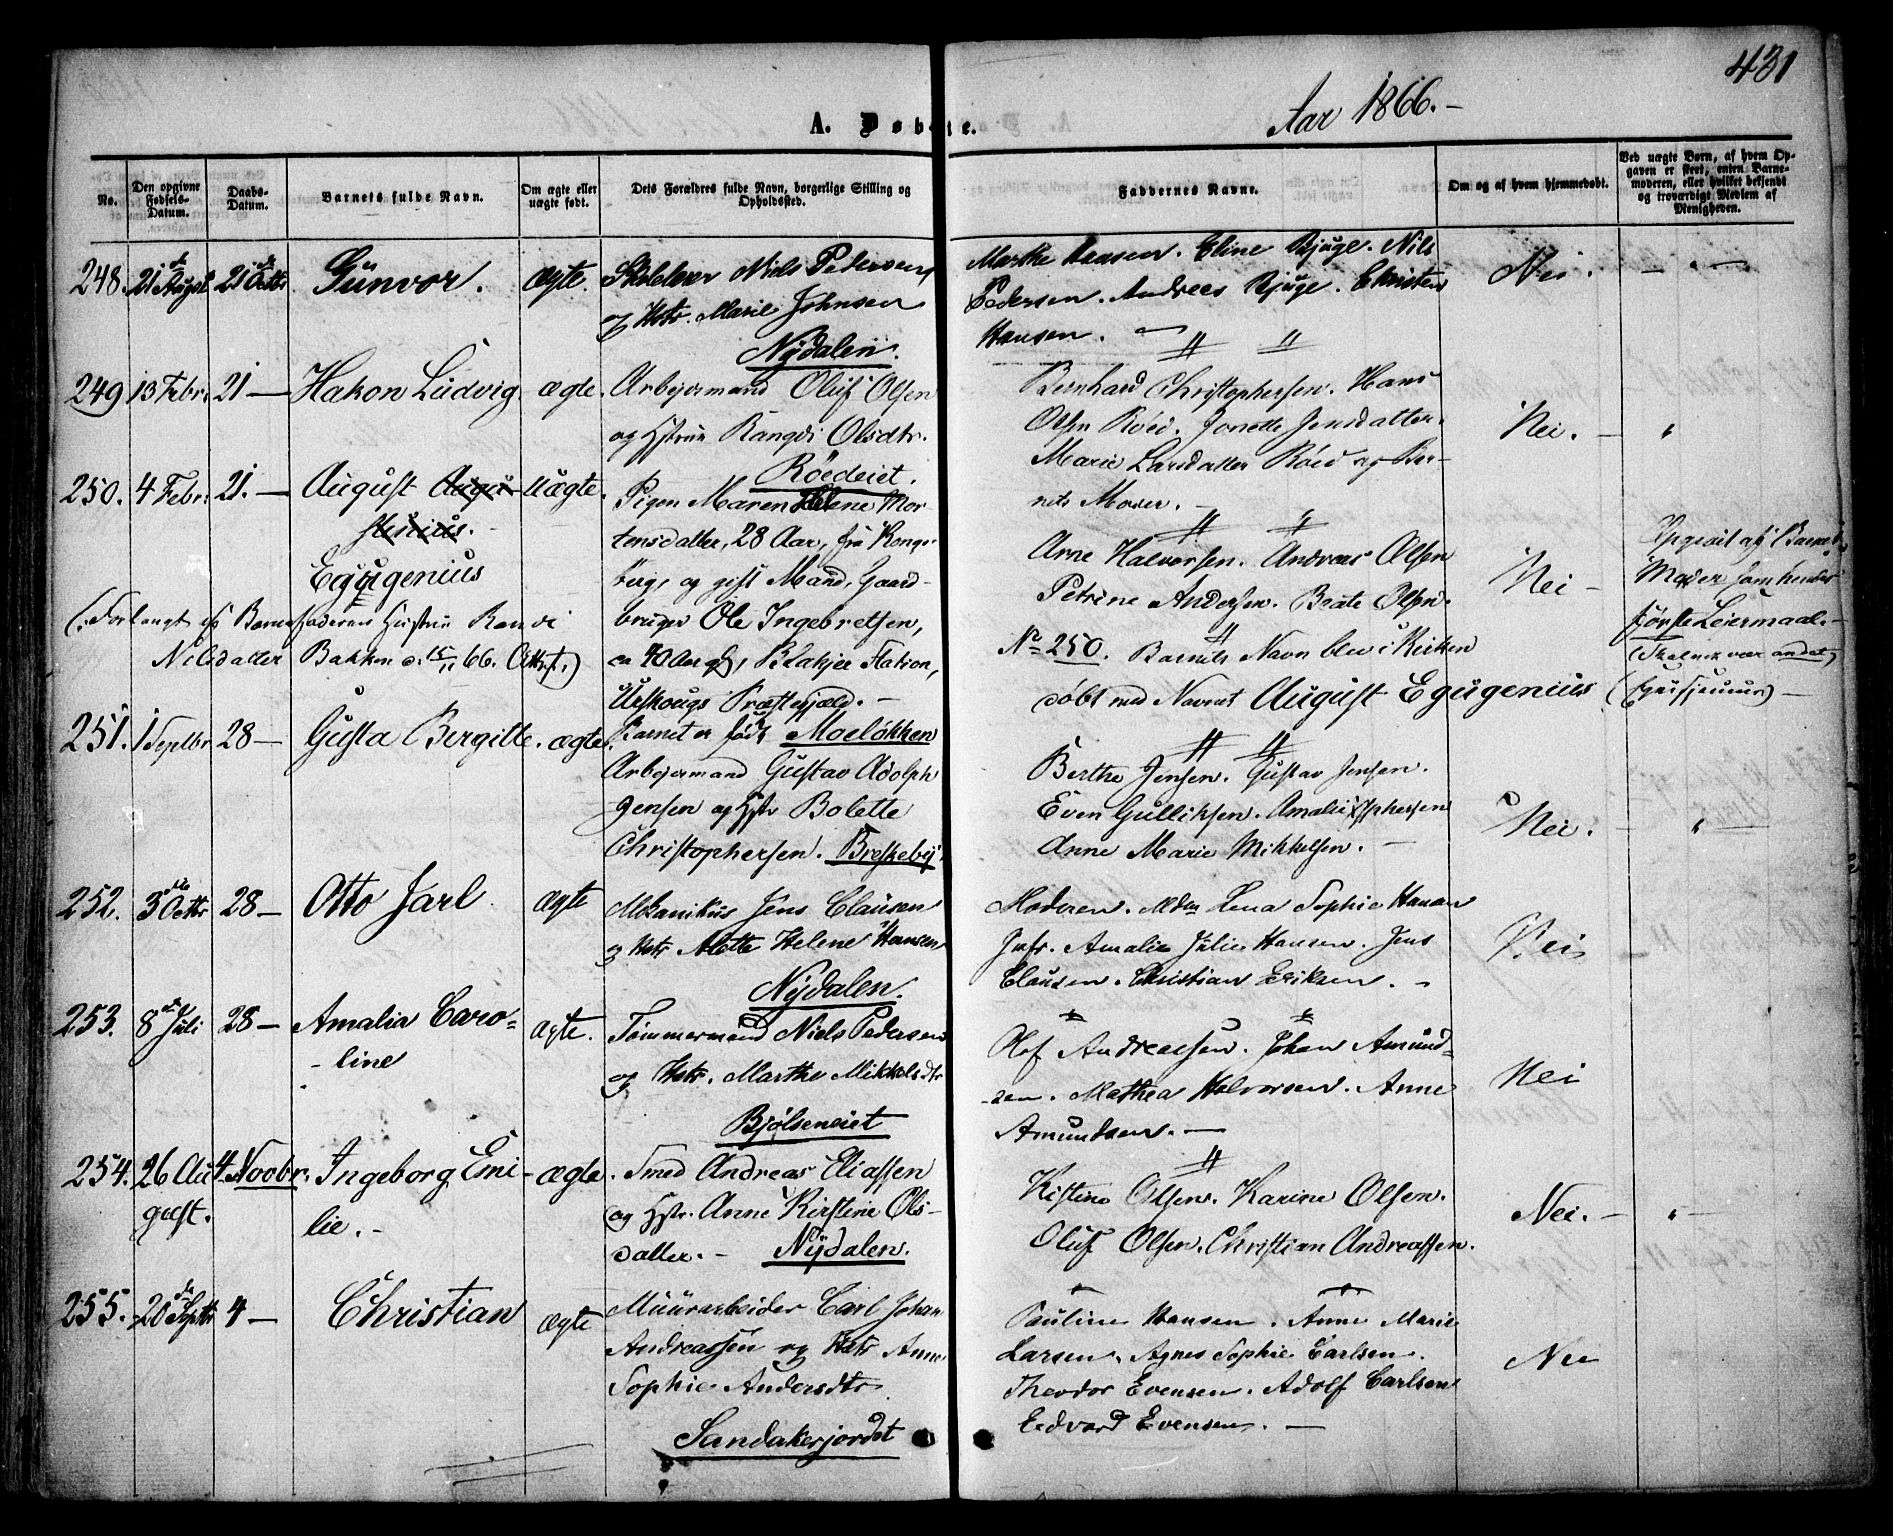 431
Aar 1866.
A. Døbte.
No.
Den opgivne Fødsels-Datum.
Daabs-Datum.
Barnets fulde Navn.
Om ægte eller uægte født.
Dets Forældres fulde Navn, borgerlige Stilling og Opholdssted.
Faddernes Navne.
Om og af hvem hjemmedøbt.
Ved uægte Børn, af hvem Opgaven er skeet, enten Barnemoderen, eller hvilket bekjendt og troværdigt Medlem af Menigheden.
248. 21de August 21de Octbr Gunvor. ægte.
Niels Pedersen
og Hstr. Marie Johnsen
Nydalen.
Marthe Hansen. Eline Bjuge. Nils
Pedersen. Andreas Bjuge. Christen
Hansen.
Nei.
249 13 Febr. 21 — Hakon Ludvig ægte.
Arbejermand Oluf Olsen
og Hstrue Rangdi Olsdtr.
Røedeiet.
Bernhard Christophersen. Hans
Olsen Røed. Jonette Jensdatter.
Marie Larsdatter Røed og Bar-
nets Moder.
Nei.
250. 4 Febr. 21. — August Augu- uægte.
stinius.
Egugenius
(Forlangt af Barnefaderens Hustru Randi
Nilsdatter Bakken 66. Attest.)
Pigen Maren Helene Mor-
tensdatter, 28 Aar, fra Kongs-
berg, og gift Mand, Gaard-
bruger Ole Ingebretsen,
ca 40 Aar gl, Blakjer Station,
Urskougs Præstegjæld. —
Barnet er født Moeløkken
Arne Halvorsen. Andreas Olsen
Petrine Andersen. Beate Olsen.
No 250. Barnets Navn blev i Kirken
døbt med Navnet August Egugenius
Nei —
Opgivit af Barnets
Moder som hendes
første Leiermaal. —
(Skal nok vær andet)
251. 1 Septbr 28 — Gusta Bergitte. ægte.
Arbejermand Gustav Adolph
Jensen og Hstr Bolette
Christophersen. Breskeby.
Berthe Jensen. Gustav Jensen.
Even Gulliksen. Amalie Xstphersen
Anne Marie Mikkelsen. —
Nei.
252. 3die Octbr 28 — Otto Jarl ægte
Mekanikus Jens Clausen
og Hstr Mette Helene Hansen
Nydalen.
Moderen. Mdm Lena Sophie Hansen
Jnfr. Amalie Julie Hansen. Jens
Clausen. Christian Eriksen. -
Nei
253. 8de Juli 28 — Amalia Caro-
line ægte.
Tømmermand Niels Pedersen
og Hstr. Marthe Mikkelsdtr
Bjølseneiet
Olof Andreassen. Johan Amund-
sen. Mathea Halvorsen. Anne
Amundsen. —
Nei
254. 26 Au- 4. Novbr. Ingeborg Emi- ægte
gust. lie. -
Smed Andreas Eliassen
og Hstr. Anne Kirstine Ols-
datter. — Nydalen.
Kistine Olsen. Karine Olsen.
Oluf Olsen. Christian Andreassen.
Nei. —
255. 20de Septbr 4 — Christian ægte
Muurarbeider Carl Johan
Andreassen og Hstr Anne
Sophie Andersdtr
Sandakerjordet
Pauline Hansen. Anne Marie
Larsen. Agnes Sophie Carlsen.
Theodor Evensen. Adolf Carlsen
Eedvard Evensen. —
Nei